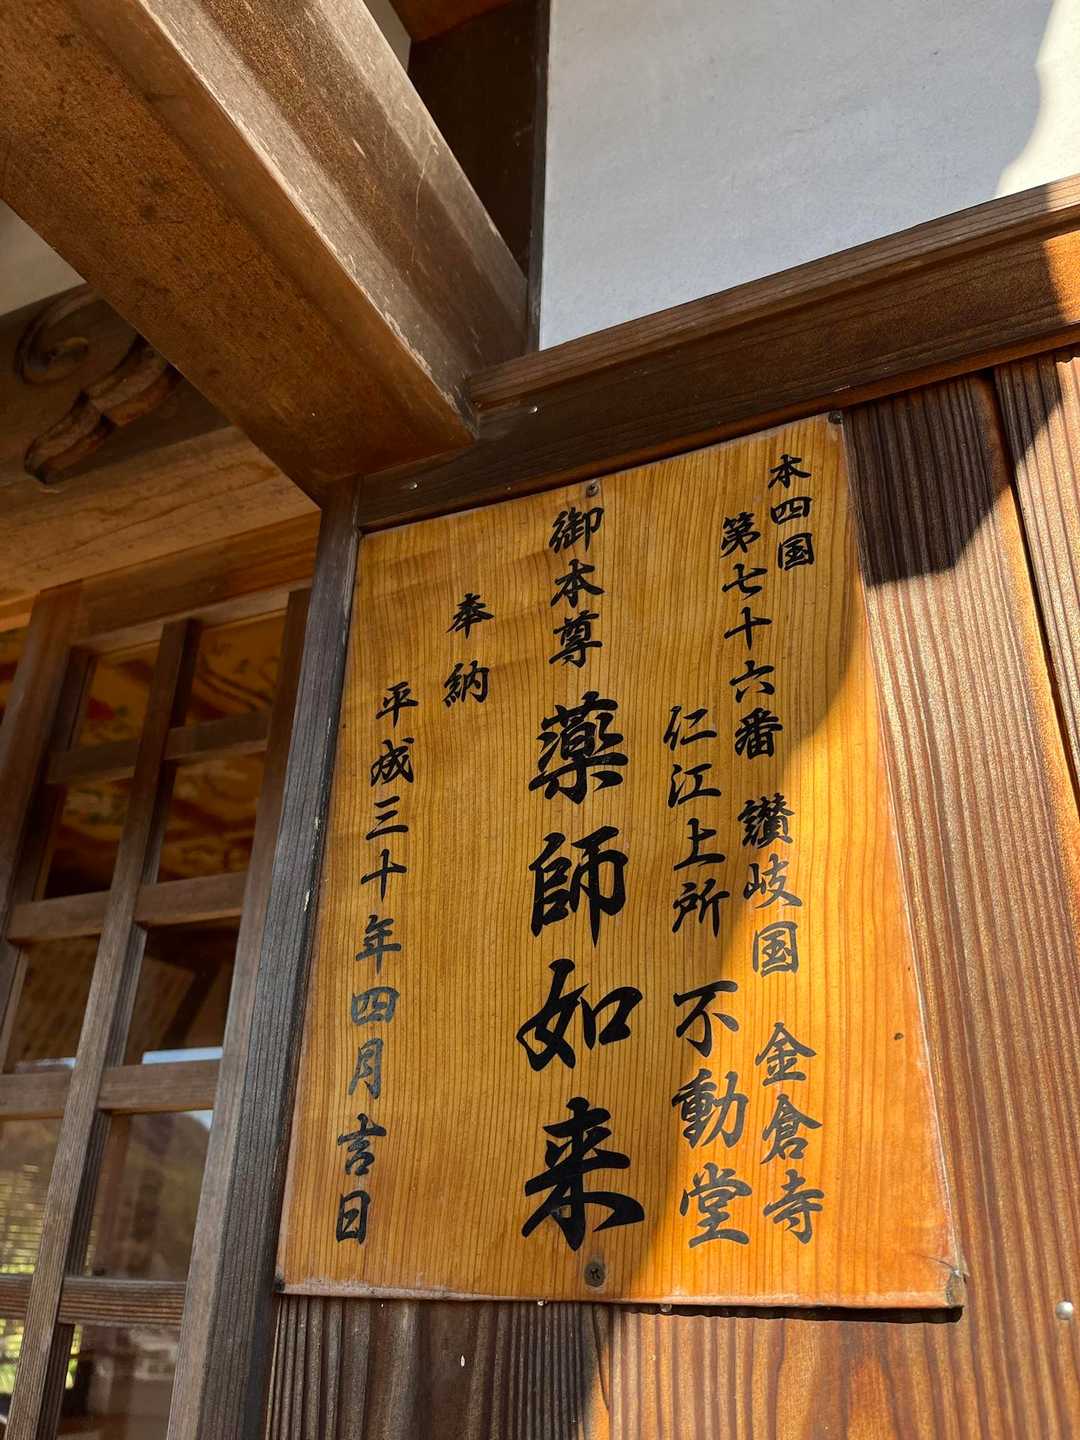 本四国
第七十六番 讃岐国 金倉寺
仁江上所 不動堂
御本尊 薬師如来
奉納
平成三十年四月吉日